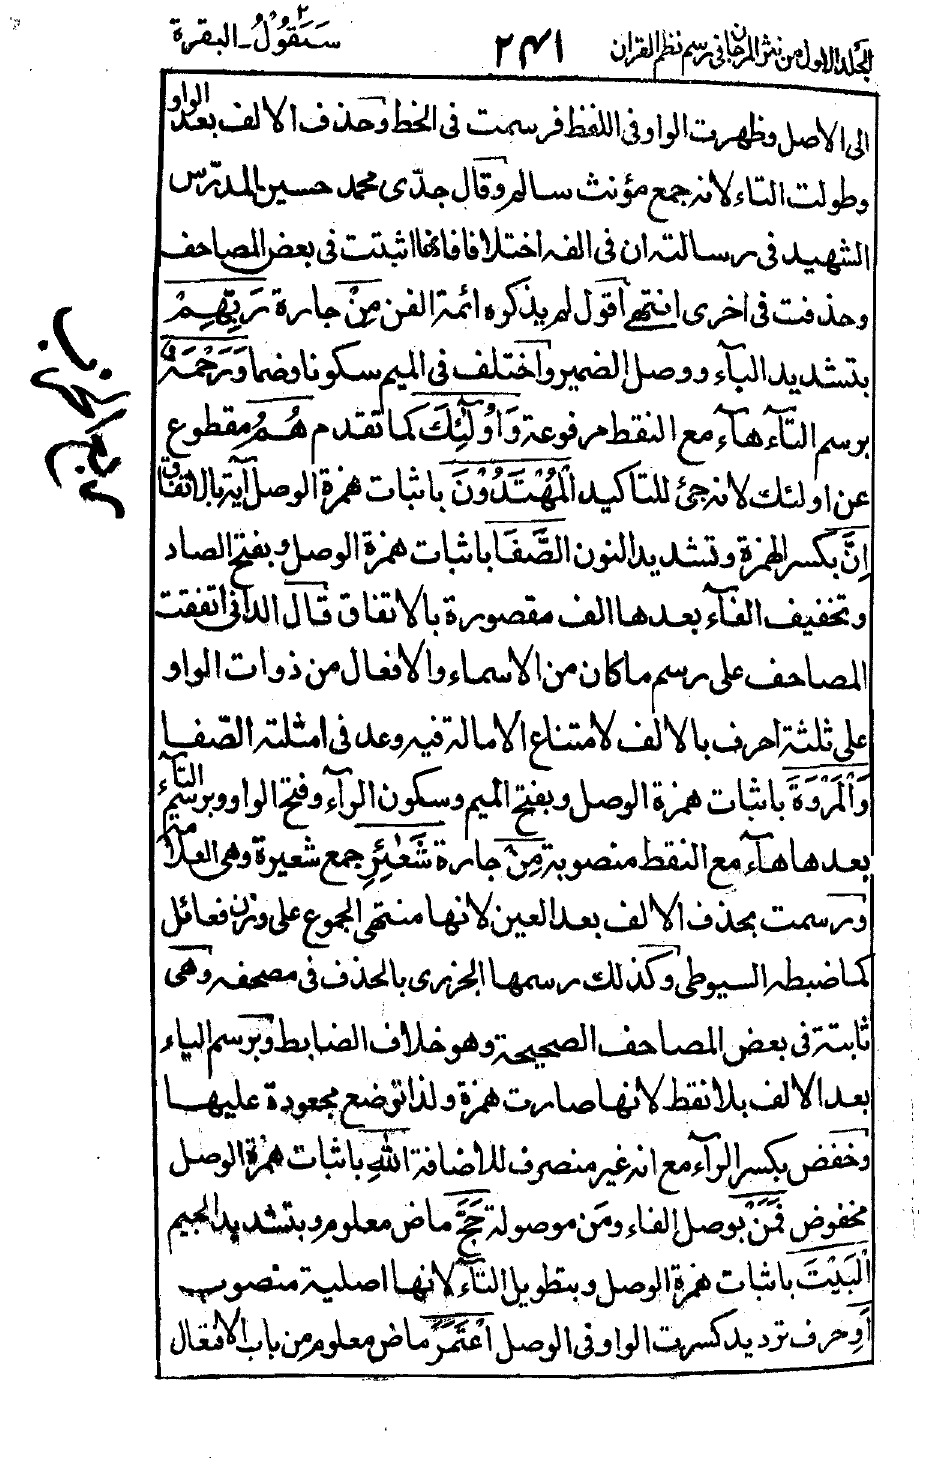 المجلد الاول من نثر المرجان فی رسم نظم القران
٢٤١
سَيَقُوْلُ ٢ - البقرة
الی الاصل وظهرت الواو فی اللفظ فرسمت فی الخط وحذف الالف بعد الواو
وطولت التاء لانه جمع مؤنث سالم وقال جدّی محمد حسین المدرّس
الشهید فی رسالته ان فی الفه اختلافا فانها اثبتت فی بعض المصاحف
وحذفت فی اخری انتهی أقول لم یذكره ائمة الفن مِنْ جارة رَبِّهِمْ
بتشدید البآء ووصل الضمیر واختلف فی المیم سكونا وضما وَرَحْمَةٌ
برسم التآء هآء مع النقط مرفوعة وَأُولٰٓئِكَ كما تقدم هُمُ مقطوع
عن اولئك لانه جیٔ للتاكید الْمُهْتَدُوْنَ باثبات همزة الوصل آیة بالاتفاق
إِنَّ بكسر الهمزة وتشدید النون الصَّفَا باثبات همزة الوصل وبفتح الصاد
وتخفیف الفآء بعدها الف مقصورة بالاتفاق قال الدانی اتفقت
المصاحف علی رسم ما كان من الاسماء والافعال من ذوات الواو
علی ثلثة احرف بالالف لامتناع الامالة فیه وعد فی امثلته الصّفا
وَالْمَرْوَةَ باثبات همزة الوصل وبفتح المیم وسكون الرآء وفتح الواو وبرسم التآء
بعدها هآء مع النقط منصوبة مِنْ جارة شَعَٰئِرِ جمع شعیرة وهی العلامة
ورسمت بحذف الالف بعد العین لانها منتهی الجموع علی وزن فعائل
كما ضبطه السیوطی وكذلك رسمها الجزری بالحذف فی مصحفه وهی
ثابتة فی بعض المصاحف الصحیحة وهو خلاف الضابط وبرسم الیاء
بعد الالف بلا نقط لانها صارت همزة ولذا توضع مجعودة علیها
وخفض بكسر الرآء مع انه غیر منصرف للاضافة اللهِ باثبات همزة الوصل
مخفوض فَمَنْ بوصل الفاء ومَن موصولة حَجَّ ماض معلوم وبتشدید الجیم
الْبَيْتَ باثبات همزة الوصل وبتطویل التآء لانها اصلیة منصوب
أَوِ حرف تردید كسرت الواو فی الوصل اعْتَمَرَ ماض معلوم من باب الافتعال